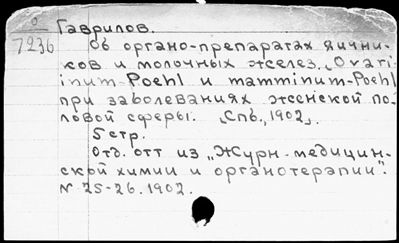 0
7236
Гаврилов.
Об органо-препаратах яични-
ков и молочных желез „Ovari-
inum-Poehl и mamminum-Poehl
при заболеваниях женской по-
ловой сферы. „Спб., 1902„.
5 стр.
Отд. отт из „Журн. медицин-
ской химии и органотерапии".
N 25-26. 1902.